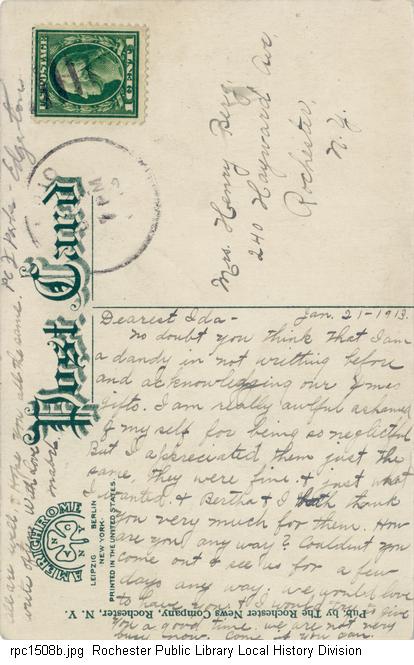 U.S. POSTAGE
1 CENT 1
PM
Post Card
Mrs. Henry Berg.
240 Hayward Ave,
Rochester,
N.Y.
Jan. 21-1913.
Dearest Ida-
No doubt you think that I am
a dandy in not writting before
and acknowledging our Xmas
gifts. I am really awful ashamed
of my self for being so neglectful
But I appreciated them just the
same, they were fine & just what
I wanted. & Bertha & I both thank
you very much for them. How
are you any way? Couldn't you
come out & see us for a few
days any way; we would love
to have you & would try & give
you a good time. we are not very
busy now. Come if you can.
we are all well & hope you all the same.
write often. With love
AMERICHROME
LEIPZIG BERLIN
NEW-YORK-
PRINTED IN THE UNITED STATES.
Pub. by The Rochester News Company, Rochester, N. Y.
rpc1508b.jpg Rochester Public Library Local History Division